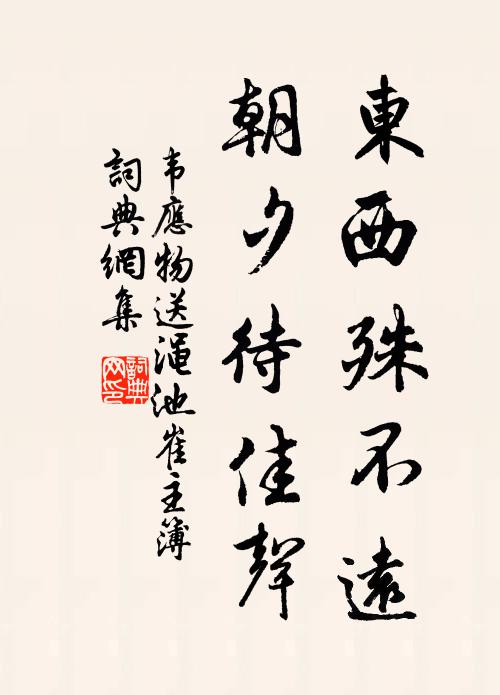 東西殊不遠
朝夕待佳聲
韦應物送澠池崔主簿
詞典網集
詞典网印